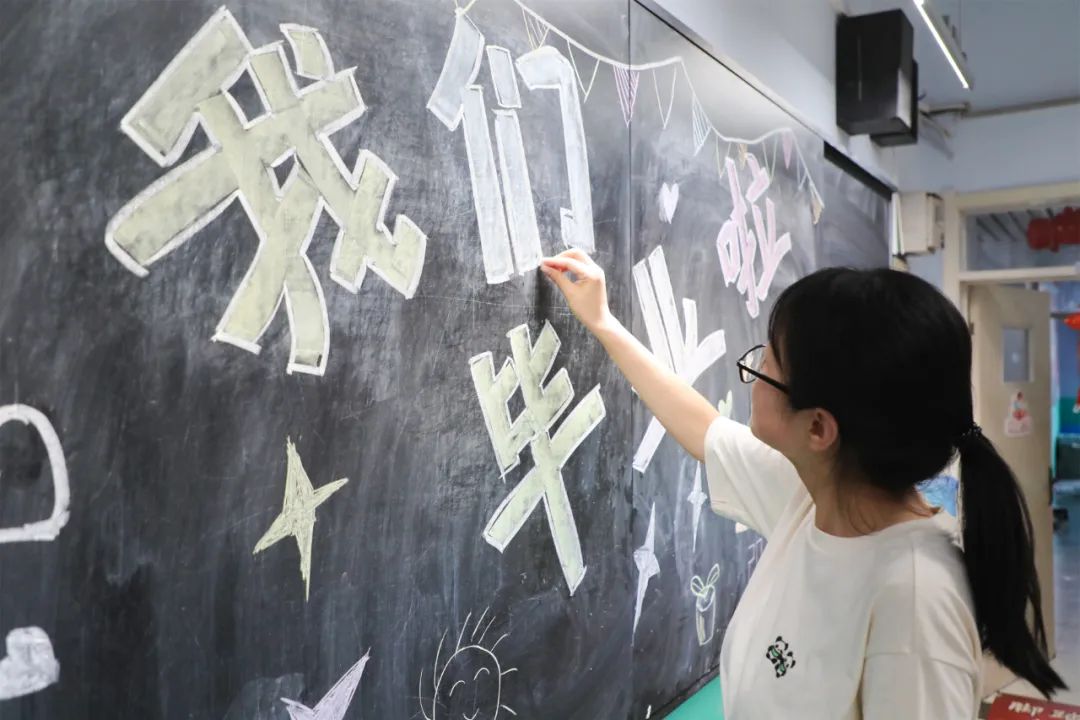 我们
毕业啦